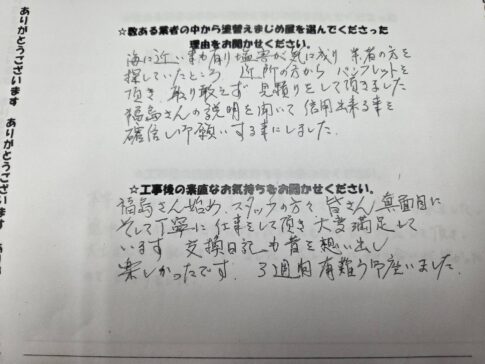 ☆数ある業者の中から塗替えまじめ屋を選んでくださった
理由をお聞かせください。
海に近い事も有り塩害が気に成り 業者の方を
探していたところ 近所の方から パンフレットを
頂き 取り敢えず 見積りをして頂きました
福島さんの説明を聞いて 信用出来る事を
確信し御願いする事にしました.
☆工事後の素直なお気持ちをお聞かせください。
福島さん始め、スタッフの方々 皆さん 真面目に
そして丁寧に 仕事をして頂き 大変満足して
います 交換日記も昔を想い出し
楽しかったです. 3週間有難う御座いました.
ありがとうございます ありがとうございます